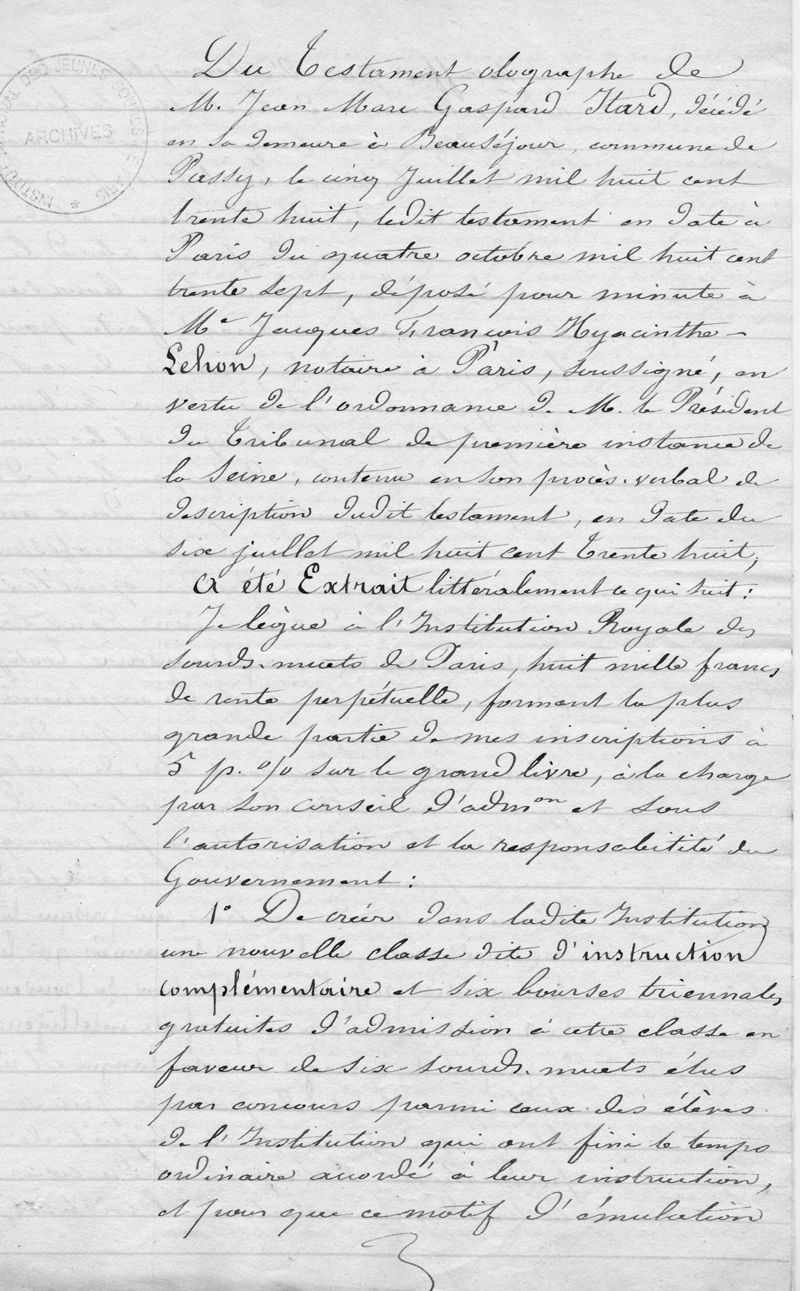 Du Testament olographe de
M. Jean Marc Gaspard Itard, décédé
en sa demeure à Beauséjour, commune de
Passy, le cinq Juillet mil huit cent
trente huit, ledit testament en date à
Paris du quatre octobre mil huit cent
trente sept, déposé pour minute à
Me Jacques François Hyacinthe
Lehon, notaire à Paris, soussigné, en
vertu de l'ordonnance de M. le Président
du Tribunal de première instance de
la Seine, contenu en son procès-verbal de
description dudit testament, en date du
six juillet mil huit cent trente huit,
a été Extrait littéralement ce qui suit:
Je lègue à l'Institution Royale des
sourds-muets de Paris, huit mille francs
de rente perpétuelle, formant la plus
grande partie de mes inscriptions à
5 p. % sur le grand livre, à la charge
par son conseil d'admon et sous
l'autorisation et la responsabilité du
Gouvernement:
1° De créer dans ladite Institution
une nouvelle classe dite d'instruction
complémentaire et six bourses triennales
gratuites d'admission à cette classe en
faveur de six sourds-muets élus
par concours parmi ceux des élèves
de l'Institution qui ont fini le temps
ordinaire accordé à leur instruction,
et pour que ce motif d'émulation
ARCHIVES